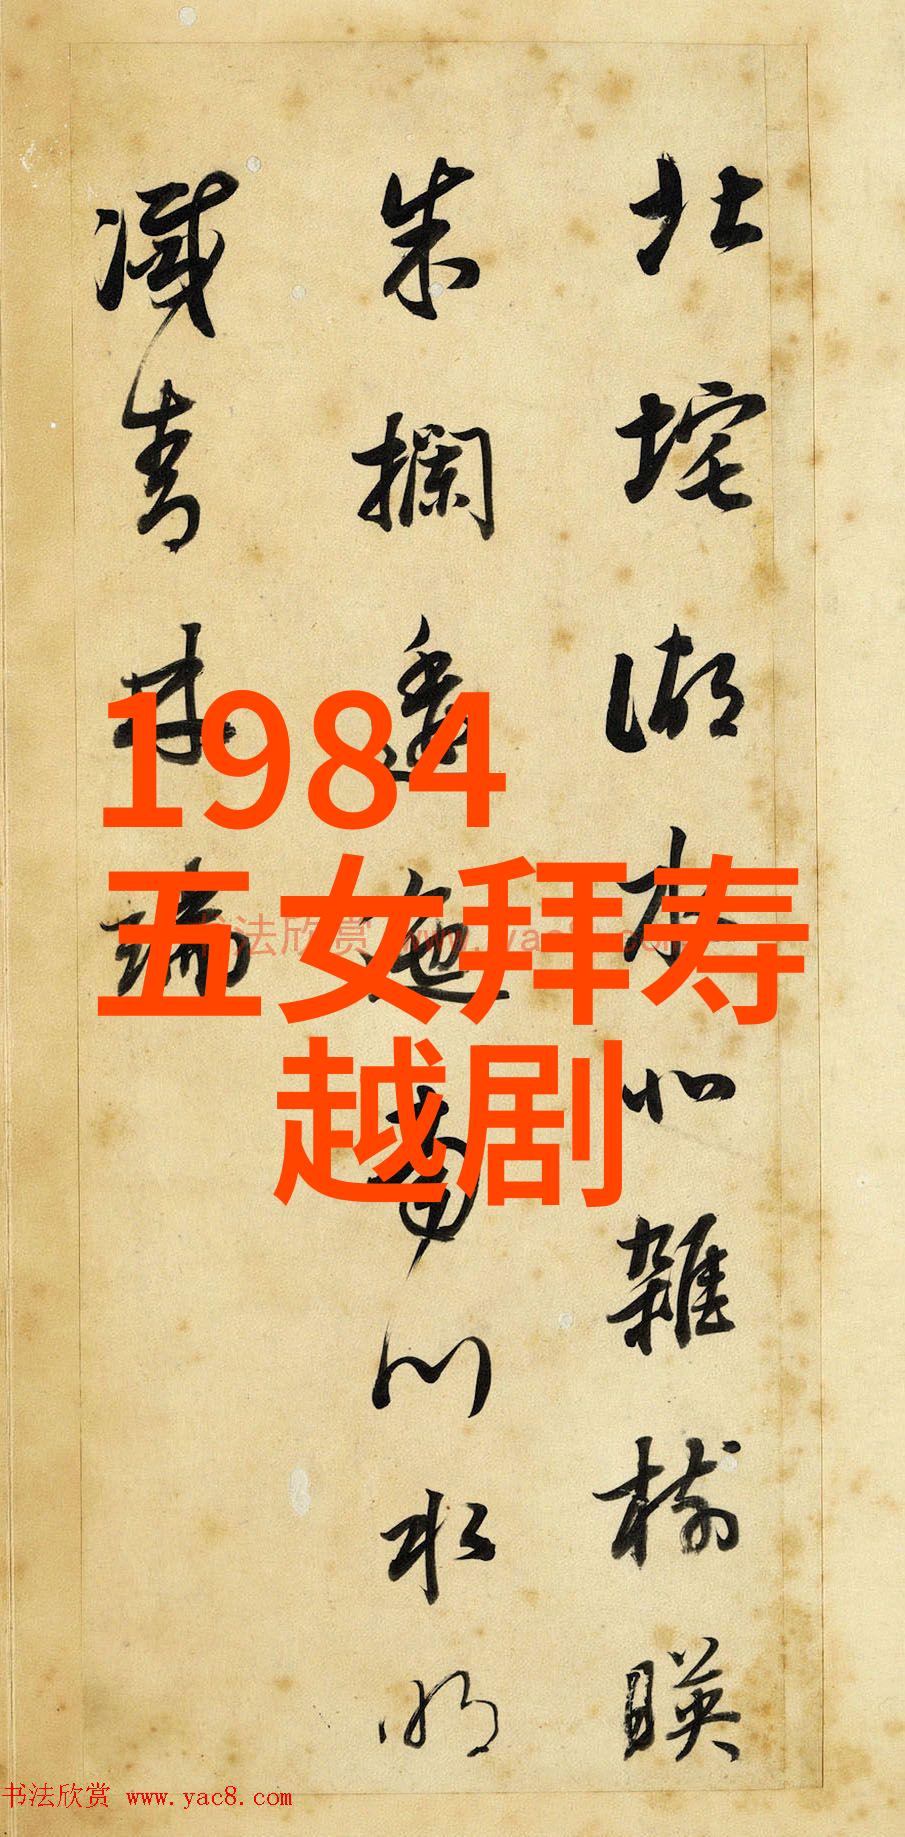 北垞湖水北雜樹暎
朱欄逶迤南川水明
滅青林端
1984
五女拜寿
越剧
书法欣赏 www.yac8.com
书法欣赏 www.yac8.com